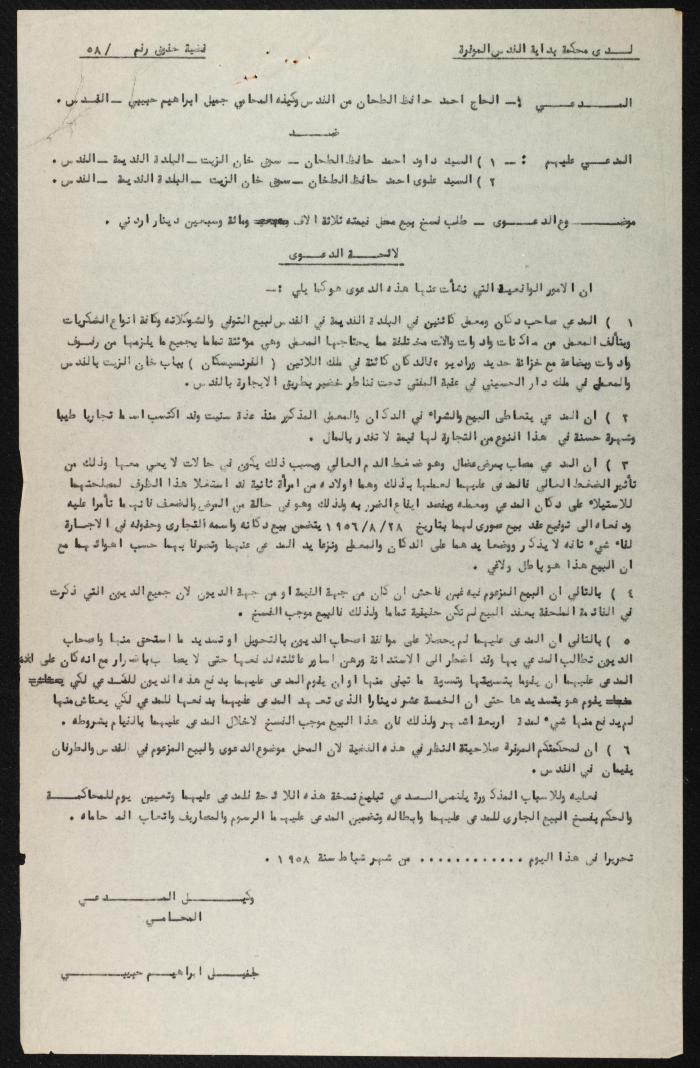 لـــدى محكمة بداية القدس الموقرة
قضية حقوق رقم     / ٥٨
المـــدعـــي :— الحاج احمد حافظ الطحان من القدس وكيله المحامي جميل ابراهيم حبيبي — القدس .
ضــــد
المدعـــي عليهم :— ١ ) السيد داود احمد حافظ الطحان — سوق خان الزيت — البلدة القديمة — القدس .
٢ ) السيد علوى احمد حافظ الطحان — سوق خان الزيت — البلدة القديمة — القدس .
موضـــوع الدعـــوى — طلب فسخ بيع محل قيمته ثلاثة الاف ومائة وسبعين دينار اردني .
لائحـــة الدعـــوى
ان الامور الواقعية التي نشأت عنها هذه الدعوى هو كما يلي :—
١ ) المدعي صاحب دكان ومعمل كائنين في البلدة القديمة في القدس لبيع التوفي والشوكلاته وكافة انواع السكريات
ويتألف المعمل من ماكنات وادوات والات مختلفة مما يحتاجها المعمل وهي مؤثثة تماما بجميع ما يلزمها من رفوف
وادوات وبضاعة مع خزانة حديد وراديو فالدكان كائنة في ملك اللاتين ( الفرنسيسكان ) بباب خان الزيت بالقدس
والمعمل في ملك دار الحسيني في عقبة المفتي تحت قناطر خضير بطريق الايجارة بالقدس .
٢ ) ان المدعي يتعاطى البيع والشراء في الدكان والمعمل المذكور منذ عدة سنين وقد اكتسب اسما تجاريا طيبا
وشهرة حسنة في هذا النوع من التجارة لها قيمة لا تقدر بالمال .
٣ ) ان المدعي مصاب بمرض عضال وهو ضغط الدم العالي وبسبب ذلك يكون في حالات لا يعي معها وذلك من
تأثير الضغط العالي فالمدعى عليهما لعلمهما بذلك وهما اولاده من امرأة ثانية قد استغلا هذا الظرف لمصلحتهما
للاستيلاء على دكان المدعي ومعمله وبقصد ايقاع الضرر به ولذلك وهو في حالة من المرض والضعف فانهما تأمرا عليه
ودفعاه الى توقيع عقد بيع صوري لهما بتاريخ ١٩٥٦/٨/٢٨ يتضمن بيع دكانه واسمه التجارى وحقوقه في الاجـارة
لقاء شيء تافه لا يذكر ووضعا يدهما على الدكان والمعمل ونزعا يد المدعي عنهما وتصرفا بهما حسب اهوائهما مع
ان البيع هذا هو باطل ولاغي .
٤ ) بالتالي ان البيع المزعوم فيه غبن فاحش ان كان من جهة القيمة او من جهة الديون لان جميع الديون التي ذكرت
في القائمة الملحقة بعقد البيع لم تكن حقيقية تماما ولذلك فالبيع موجب الفسخ .
٥ ) بالتالي ان المدعى عليهما لم يحصلا على موافقة اصحاب الديون بالتحويل او تسديد ما استحق منها واصحاب
الديون تطالب المدعي بها وقد اضطر الى الاستدانة ورهن اساور عائلته لدفعها حتى لا يصاب باضرار مع انه كان على
المدعى عليهما ان يقوما بتسويتها وتسوية ما تبقى منها او ان يقوم المدعى عليهما بدفع هذه الديون للمدعي لكي
يقوم هو بتسديدها حتى ان الخمسة عشر دينارا الذى تعهد المدعى عليهما بدفعها للمدعي لكي يعتاش منها
لم يدفع منها شيء لمدة اربعة اشهر ولذلك فان هذا البيع موجب الفسخ لاخلال المدعى عليهما بالقيام بشروطه .
٦ ) ان لمحكمتكم الموقرة صلاحية النظر في هذه القضية لان المحل موضوع الدعوى والبيع المزعوم في القدس والطرفان
يقيمان في القدس .
فعليه وللاسباب المذكورة يلتمس المدعي تبليغ نسخة هذه اللائحة للمدعى عليهما وتعيين يوم للمحاكمـــة
والحكم بفسخ البيع الجارى للمدعى عليهما وابطاله وتضمين المدعى عليهما الرسوم والمصاريف واتعاب المحاماه .
تحريرا في هذا اليوم ............ من شهر شباط سنة ١٩٥٨ .
وكيـــل المـــدعـــي
المحامـــي
جميـــل ابراهيـــم حبيبـــي